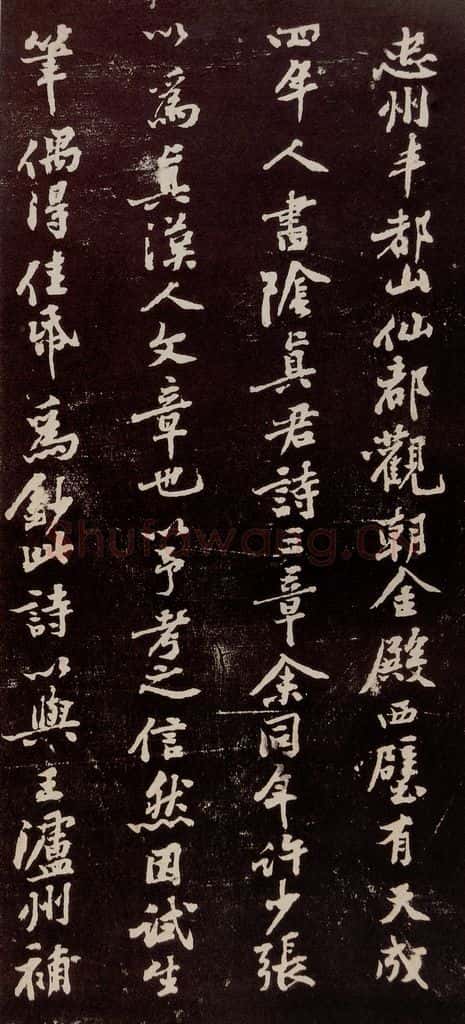 忠州丰都山仙都觀朝金殿西壁有天成
四年人書陰眞君詩三章余同年許少張
以爲眞漢人文章也以予考之信然因試生
筆偶得佳帋爲鈔此詩以與王瀘州補
shufawang.cn